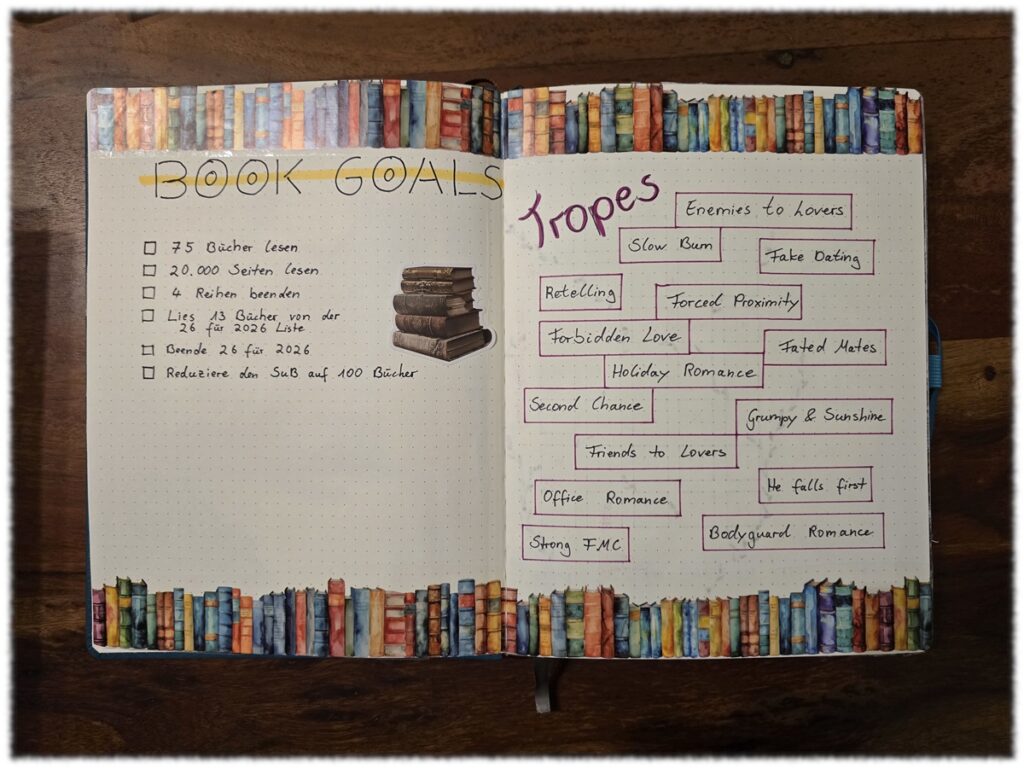 BOOK GOALS
75 Bücher lesen
20.000 Seiten lesen
4 Reihen beenden
Lies 13 Bücher von der
26 für 2026 Liste
Beende 26 für 2026
Reduziere den SuB auf 100 Bücher
Tropes
Enemies to Lovers
Slow Burn
Fake Dating
Retelling
Forced Proximity
Forbidden Love
Fated Mates
Holiday Romance
Second Chance
Grumpy & Sunshine
Friends to Lovers
Office Romance
He falls first
Strong FMC
Bodyguard Romance